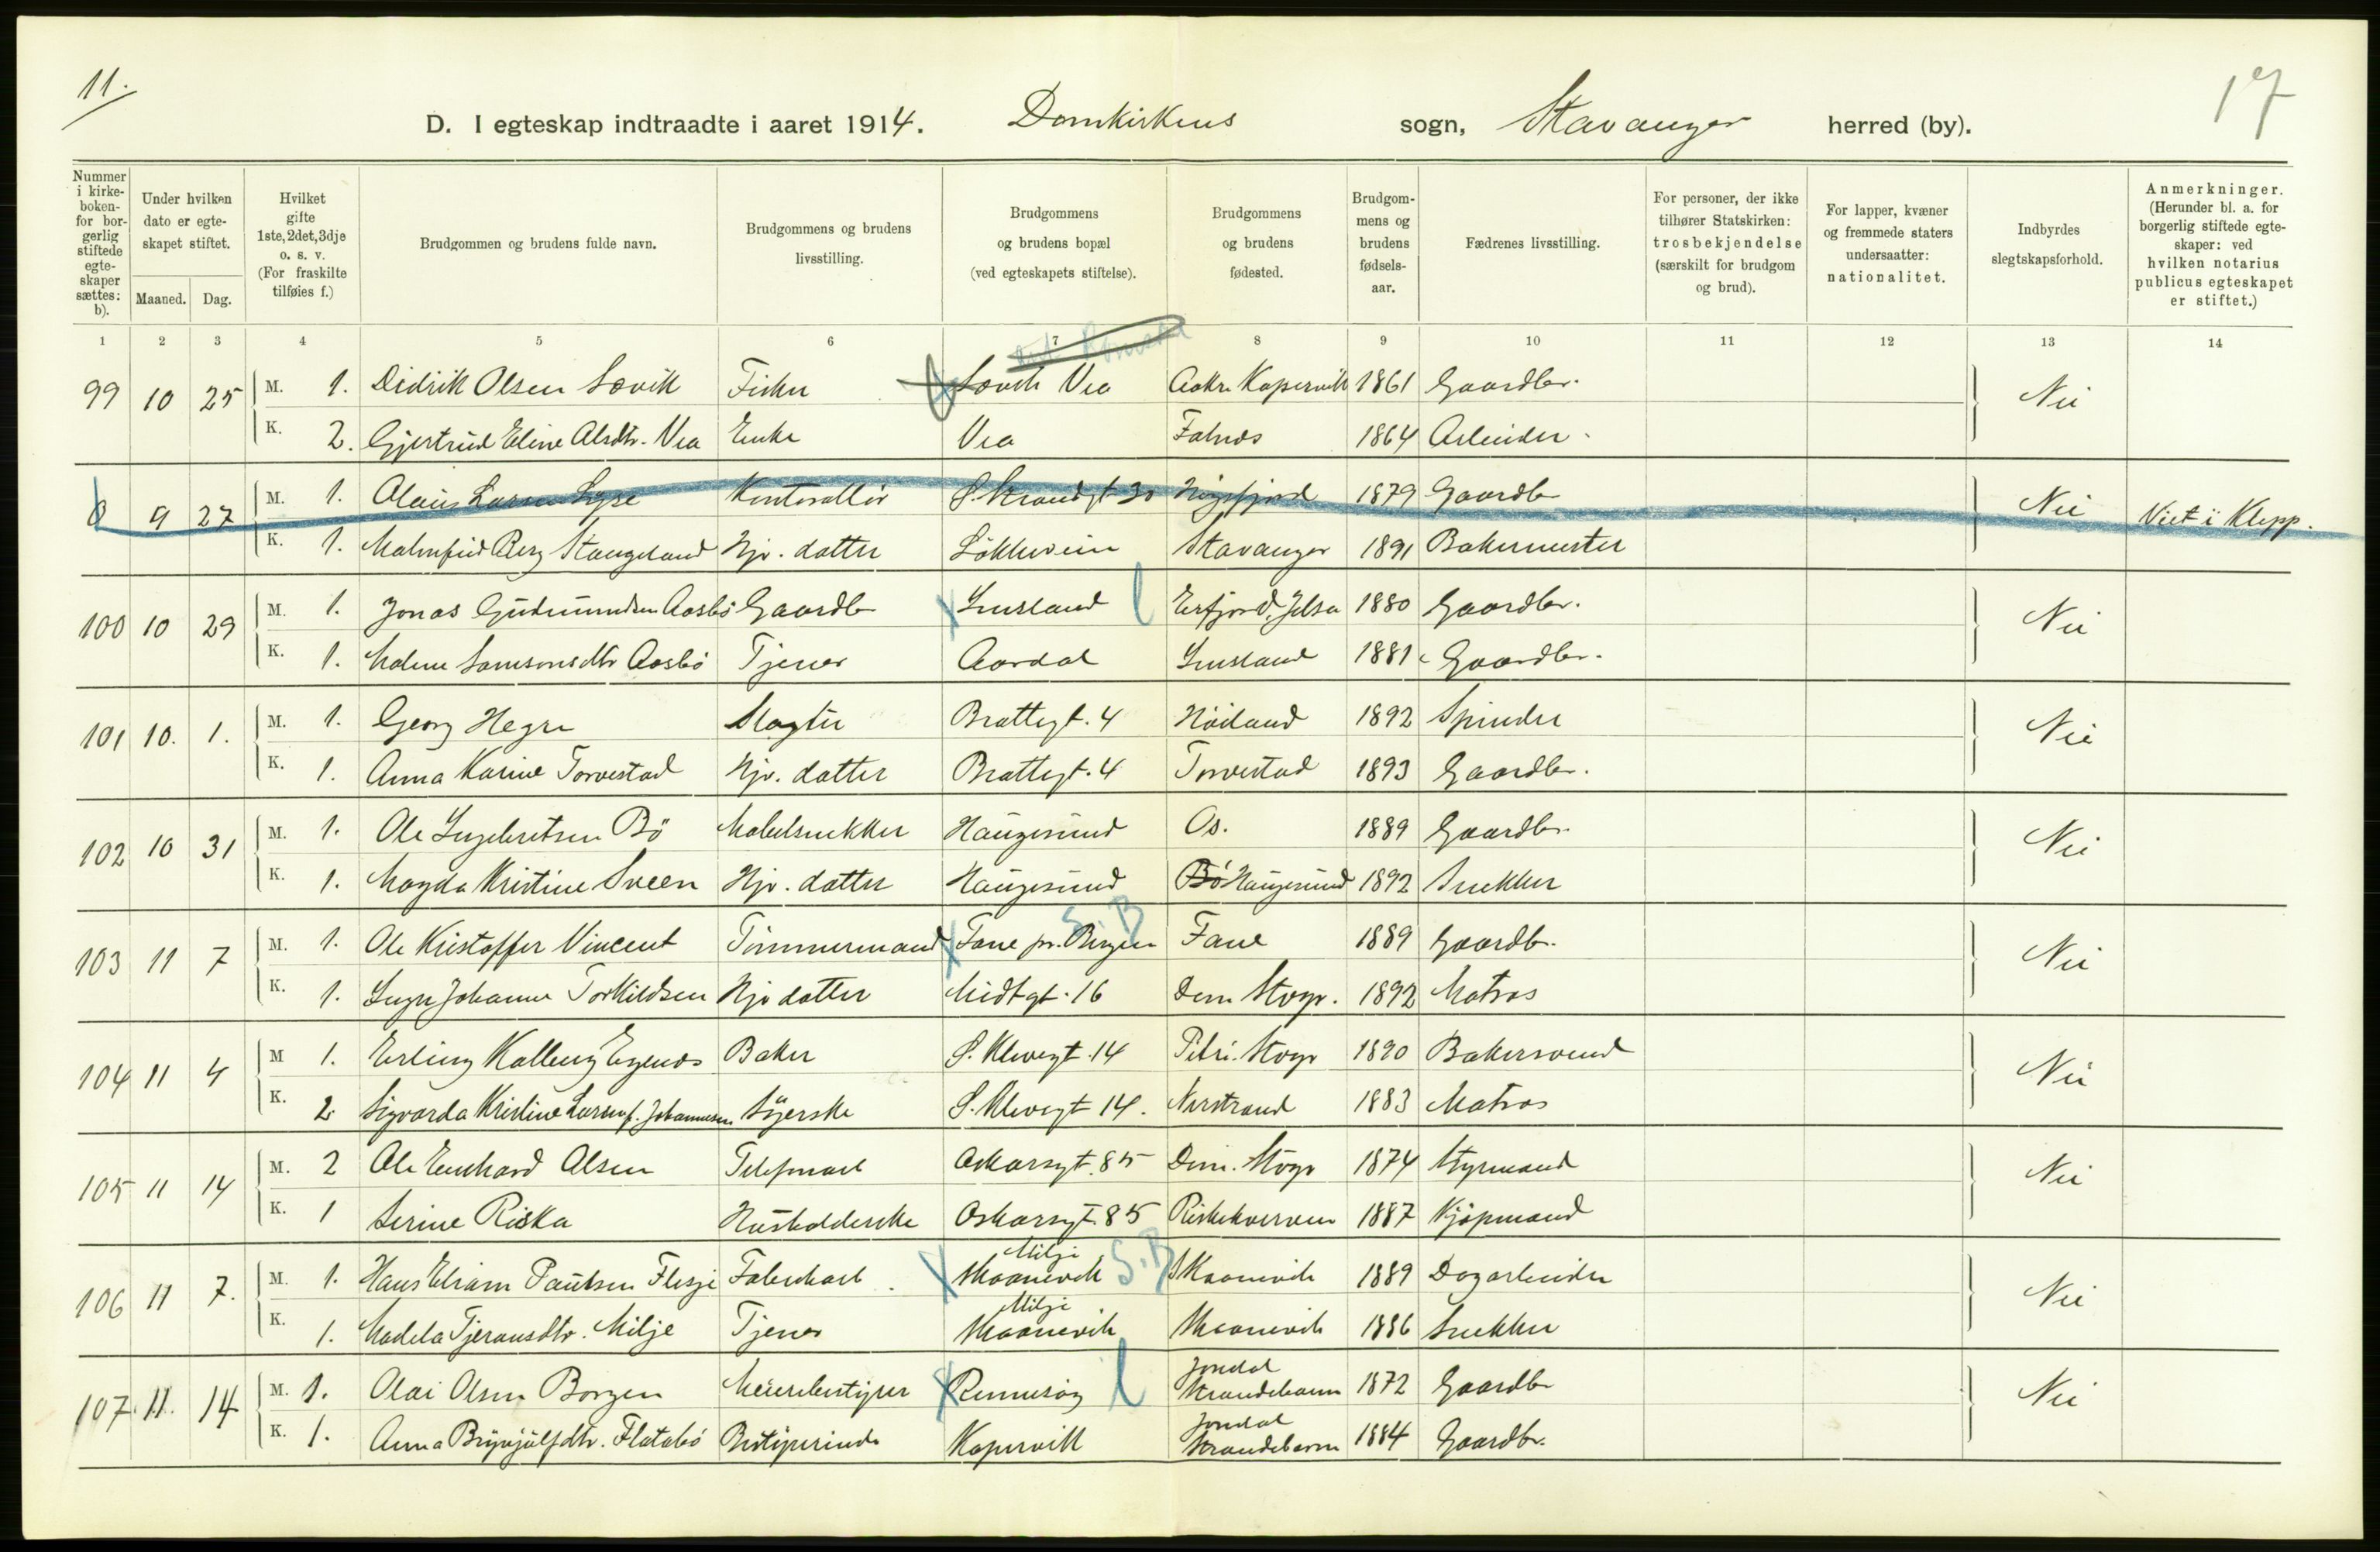 11.
17
D. I egteskap indtraadte i aaret 1914. Domkirkens sogn, Stavanger herred (by).
Nummer i kirkeboken- for borgerlig stiftede egteskaper sættes: b).
Under hvilken dato er egteskapet stiftet.
Maaned. Dag.
Hvilket gifte 1ste, 2det, 3dje o. s. v. (For fraskilte tilføies f.)
Brudgommen og brudens fulde navn.
Brudgommens og brudens livsstilling.
Brudgommens og brudens bopæl (ved egteskapets stiftelse).
Brudgommens og brudens fødested.
Brudgommens og brudens fødselsaar.
Fædrenes livsstilling.
For personer, der ikke tilhører Statskirken: trosbekjendelse (særskilt for brudgom og brud).
For lapper, kvæner og fremmede staters undersaatter: nationalitet.
Indbyrdes slegtskapsforhold.
Anmerkninger. (Herunder bl. a. for borgerlig stiftede egteskaper: ved hvilken notarius publicus egteskapet er stiftet.)
1 2 3 4 5 6 7 8 9 10 11 12 13 14
99 10 25 M. 1. Didrik Olsen Sævik Fisker Sævik Vea Aakre Kopervik 1861 Gaardbr. Nei
K. 2. Gjertrud Eline Alsdtr. Vea Enke Vea Falnes 1864 Arbeider.
0 9 27 M. 1. Olaus Larsen Lyse Kontorallør S. Strandgt 30 Høgsfjord 1879 Gaardb Nei Viet i Klepp.
K. 1. Malmfrid Berg Stangeland Hjv. datter Løkkeveien Stavanger 1891 Bakermester
100 10 29 M. 1. Jonas Gudmundsen Aasbø Gaardb Imsland Erfjord, Jelsa 1880 Gaardbr. Nei
K. 1. Malene Samsonsdtr Aasbø Tjener Aardal Imsland 1881 Gaardbr.
101 10. 1. M. 1. Georg Hegre Slagter Brattegt. 4 Høiland 1892 Spinder Nei
K. 1. Anna Karine Torvestad Hjv. datter Brattegt. 4 Torvestad 1893 Gaardbr.
102 10 31 M. 1. Ole Ingebretsen Bø Mobelsnekker Haugesund Os. 1889 Gaardbr. Nei
K. 1. Magda Kristine Sveen Hjv. datter Haugesund Bø Haugesund 1892 Snekker
103 11 7 M. 1. Ole Kristoffer Vincent Tømmermand Fane pr. Bergen S.B Fane 1889 Gaardb. Nei
K. 1. Inger Johanne Torkildsen Hjv datter Midtgt. 16 Dom Stvgr. 1892 Matros
104 11 4 M 1. Erling Kalberg Egenes Baker S. Klevegt. 14 Petri. Stvgr 1890 Bakersvend Nei
K. 2. Sigvarda Kristine Larsen f. Johannesen Syerske S. Klevegt 14. Nerstrand 1883 Matros
105 11 14 M. 2 Ole Enchard Olsen Telefonarb Oskarsgt. 85 Dom. Stvgr 1874 Styrmand Nei
K. 1 Serine Riska Husholderske Oskarsgt. 85 Riskekverven 1887 Kjøpmand
106 11 7. M. 1. Hans Eliam Paulsen Flesje Fabrikarb. Milje Skaanevik S.B Skaanevik 1889 Dagarbeider Nei
K. 1. Madela Tjeransdtr. Milje Tjener Milje Skaanevik Skaanevik 1886 Snekker
107. 11. 14 M. 1. Olai Olsen Borgen Meieribestyrer Rennesøy Jondal Strandebarm 1872 Gaardb Nei
K. 1. Anna Brynjulfdtr. Flatabø Bestyrerinde Kopervik Jondal Strandebarm 1884 Gaardbr.